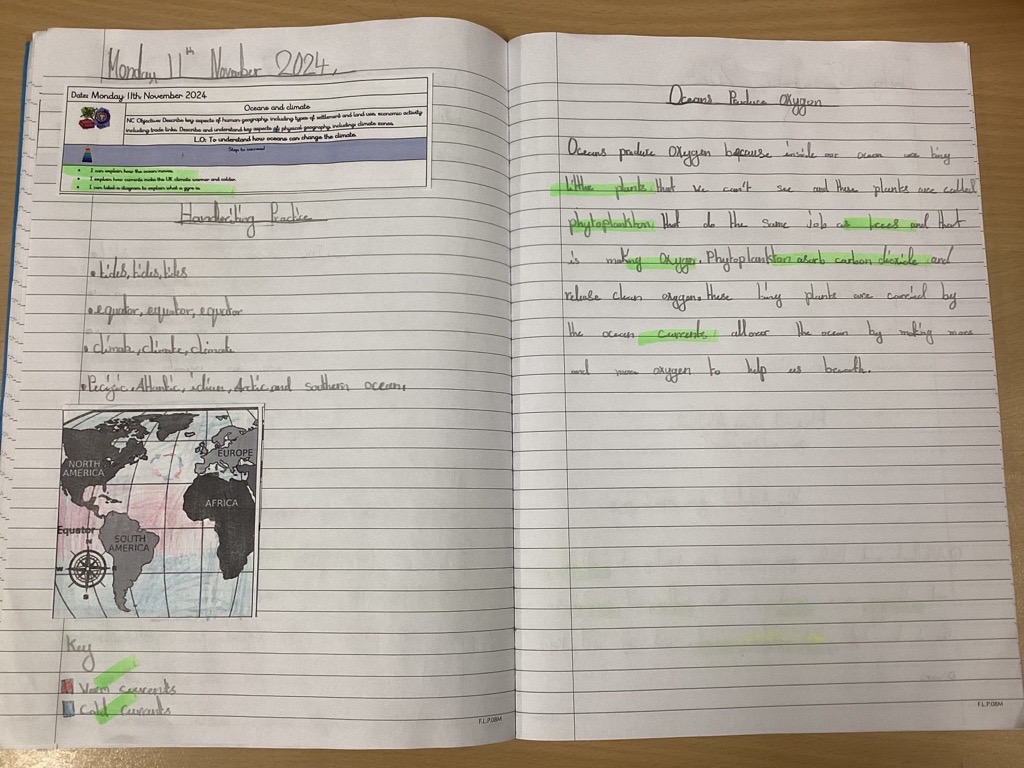 Monday 11th November 2024.
Date: Monday 11th November 2024
Oceans and climate
NC Objective: Describe key aspects of human geography including types of settlement and land use, economic activity
including trade links. Describe and understand key aspects of physical geography including climate zones.
L.O: To understand how oceans can change the climate.
Steps to success!
I can explain how the ocean moves.
I explain how currents make the UK climate warmer and colder.
I can label a diagram to explain what a gyre is.
Handwriting Practice
• tides, tides, tides
• equator, equator, equator
• climate, climate, climate
• Pecific, Atlantic, idian, Arctic and southern ocean.
NORTH
AMERICA
EUROPE
AFRICA
Equator
SOUTH
AMERICA
N
W
E
S
Key
Warm currents
Cold currents
F.L.P.08M
Oceans Produce Oxygen
Oceans produce Oxygen because inside our ocean are tiny
little plants that we can't see and these plants are called
phytoplankton that do the same job as trees and that
is making Oxygen. Phytoplankton asorb carbon dioxide and
release clean oxygen. these tiny plants are carried by
the ocean currents allover the ocean by making more
and more oxygen to help us breath.
F.L.P.08M